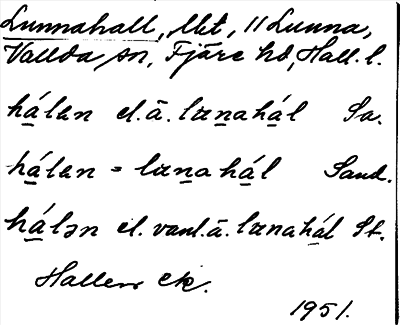 Lunnahall, lht, 11 Lunna,
Vallda sn, Fjäre hd, Hall. l.
hálen el. ä. lunahál Sa.
hálen = lunahál Sand.
hálən el. vanl. ä. lunahál St.
Hallen ek.
1951.